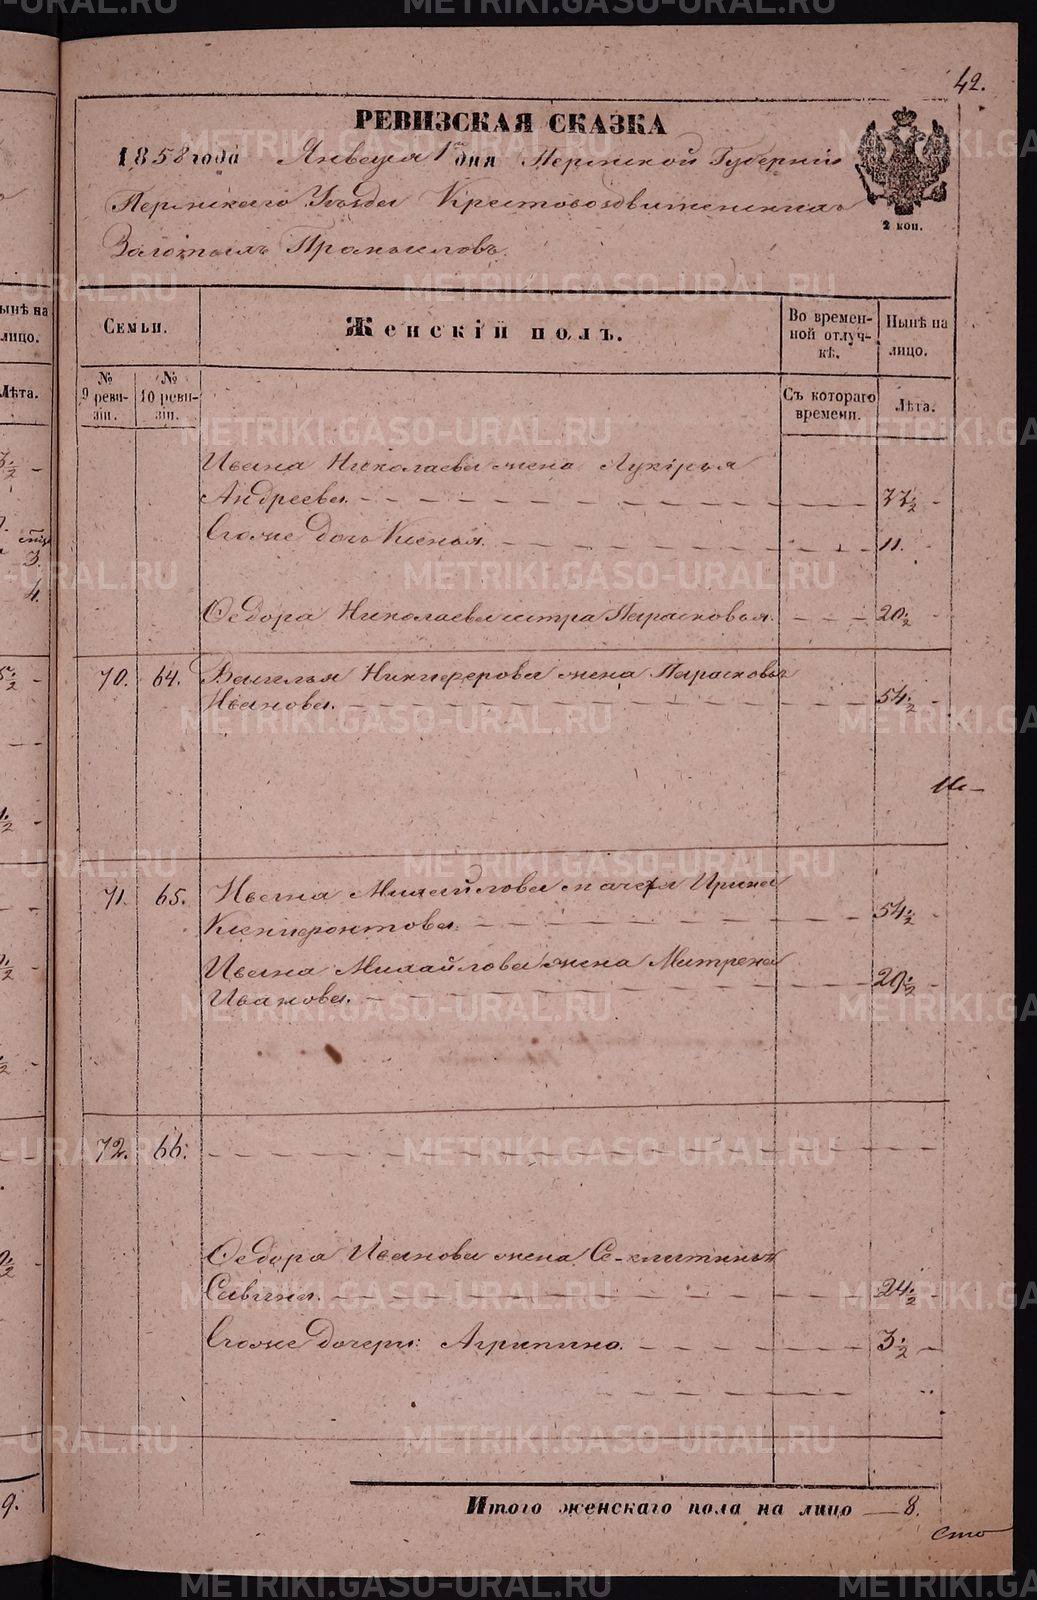 42.
РЕВИЗСКАЯ СКАЗКА
1858 года Января 1 дня Пермской Губернiи
Пермскаго Уѣзда Крестовоздвиженскихъ
Золотыхъ Промысловъ
2 коп.
Семьи.
Женскiй полъ.
Во времен-
ной отлуч-
кѣ.
Нынѣ на
лицо.
№
9 реви-
зiи.
№
10 реви-
зiи.
Съ котораго
времени.
Лѣта.
Ивана Николаева жена Лукерья
Андреева. 33 1/2
Егоже дочь Ксенья. 11.
Федора Николаева сестра Парасковья. 20 1/2
70. 64. Василья Никиферова жена Парасковья
Иванова. 54 1/2
71. 65. Ивана Михайлова мачеха Ирина
Ксенифонтова. 54 1/2
Ивана Михайлова жена Матрена
Иванова. 29 1/2
72. 66.
Федора Иванова жена
Савина. 24 1/2
Егоже дочери: Агрипина. 3 1/2
Итого женскаго пола на лицо 8.
METRIKI.GASO-URAL.RU